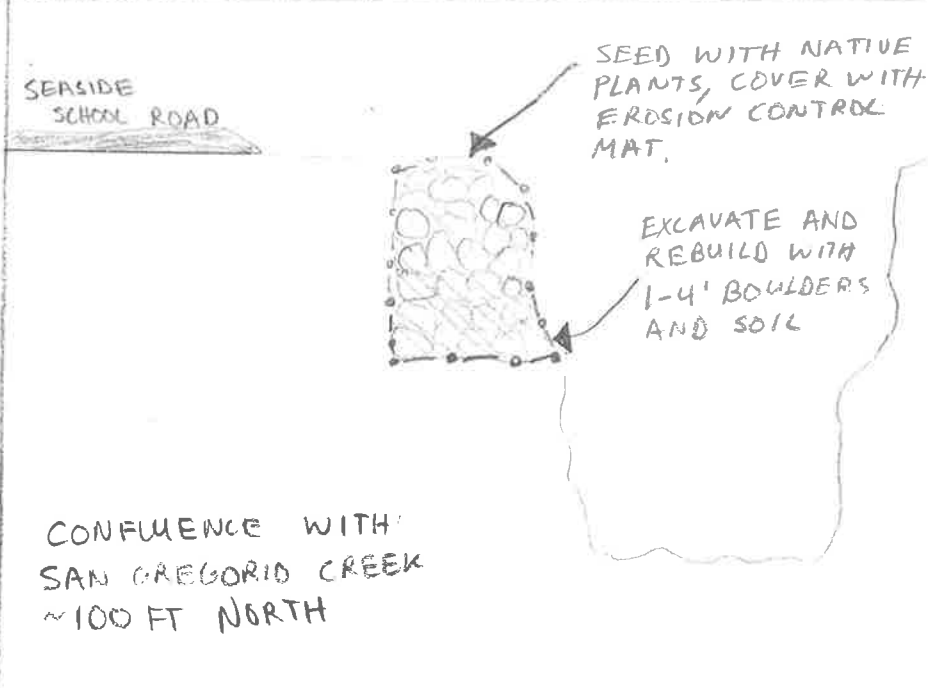 SEASIDE
SCHOOL ROAD
SEED WITH NATIVE
PLANTS, COVER WITH
EROSION CONTROL
MAT.
EXCAVATE AND
REBUILD WITH
1-4' BOULDERS
AND SOIL
CONFLUENCE WITH
SAN GREGORIO CREEK
~100 FT NORTH